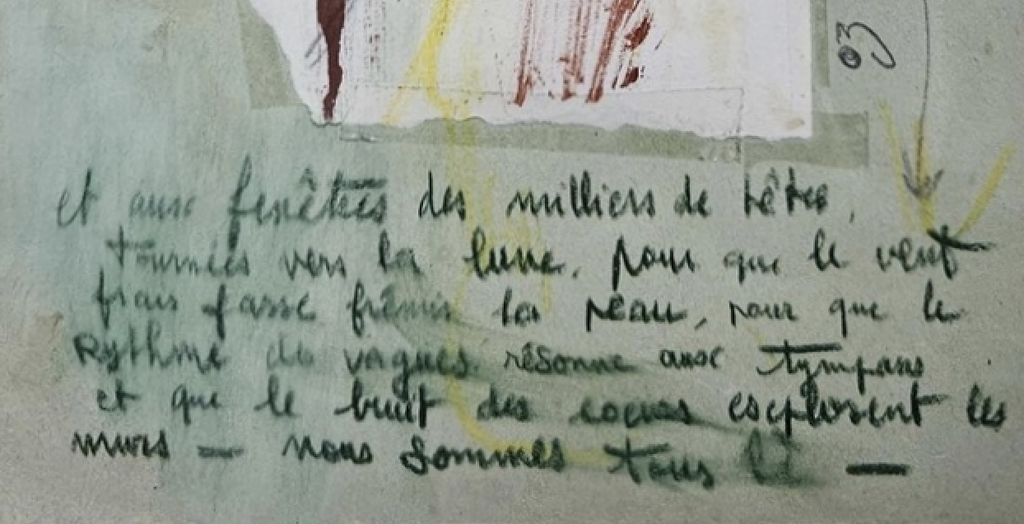 03
et aux fenêtres des milliers de têtes,
tournées vers la lune, pour que le vent
frais fasse frémir la peau, pour que le
Rythme des vagues résonne aux tympans
et que le bruit des coeurs explosent les
murs — nous sommes tous là —